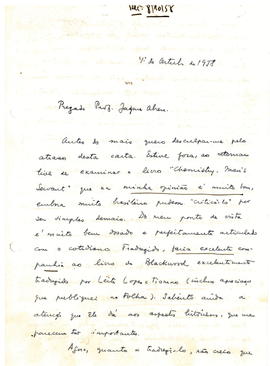 1º de Outubro de 1958
Prezado Prof. Jayme Abreu.
Antes de mais quero desculpar-me pelo
atraso desta carta. Estive fora, ao retornar
tive de examinar o livro "Chemistry, Man's
Servant" que na minha opinião é muito bom,
embora muito brasileiro pudesse "criticá-lo" por
ser simples demais. Do meu ponto de vista
é muito bem dosado e perfeitamente articulado
com o cotidiano. Traduzido, faria excelente com-
panhia ao livro de Blackwood excelentemente
traduzido por Leite Lopes e Tiomno
que publiquei na Folha). Saliento ainda a
atenção que ele dá aos aspectos históricos, que me
parecem tão importantes.
Agora, quanto a traduzi-lo, não creio que